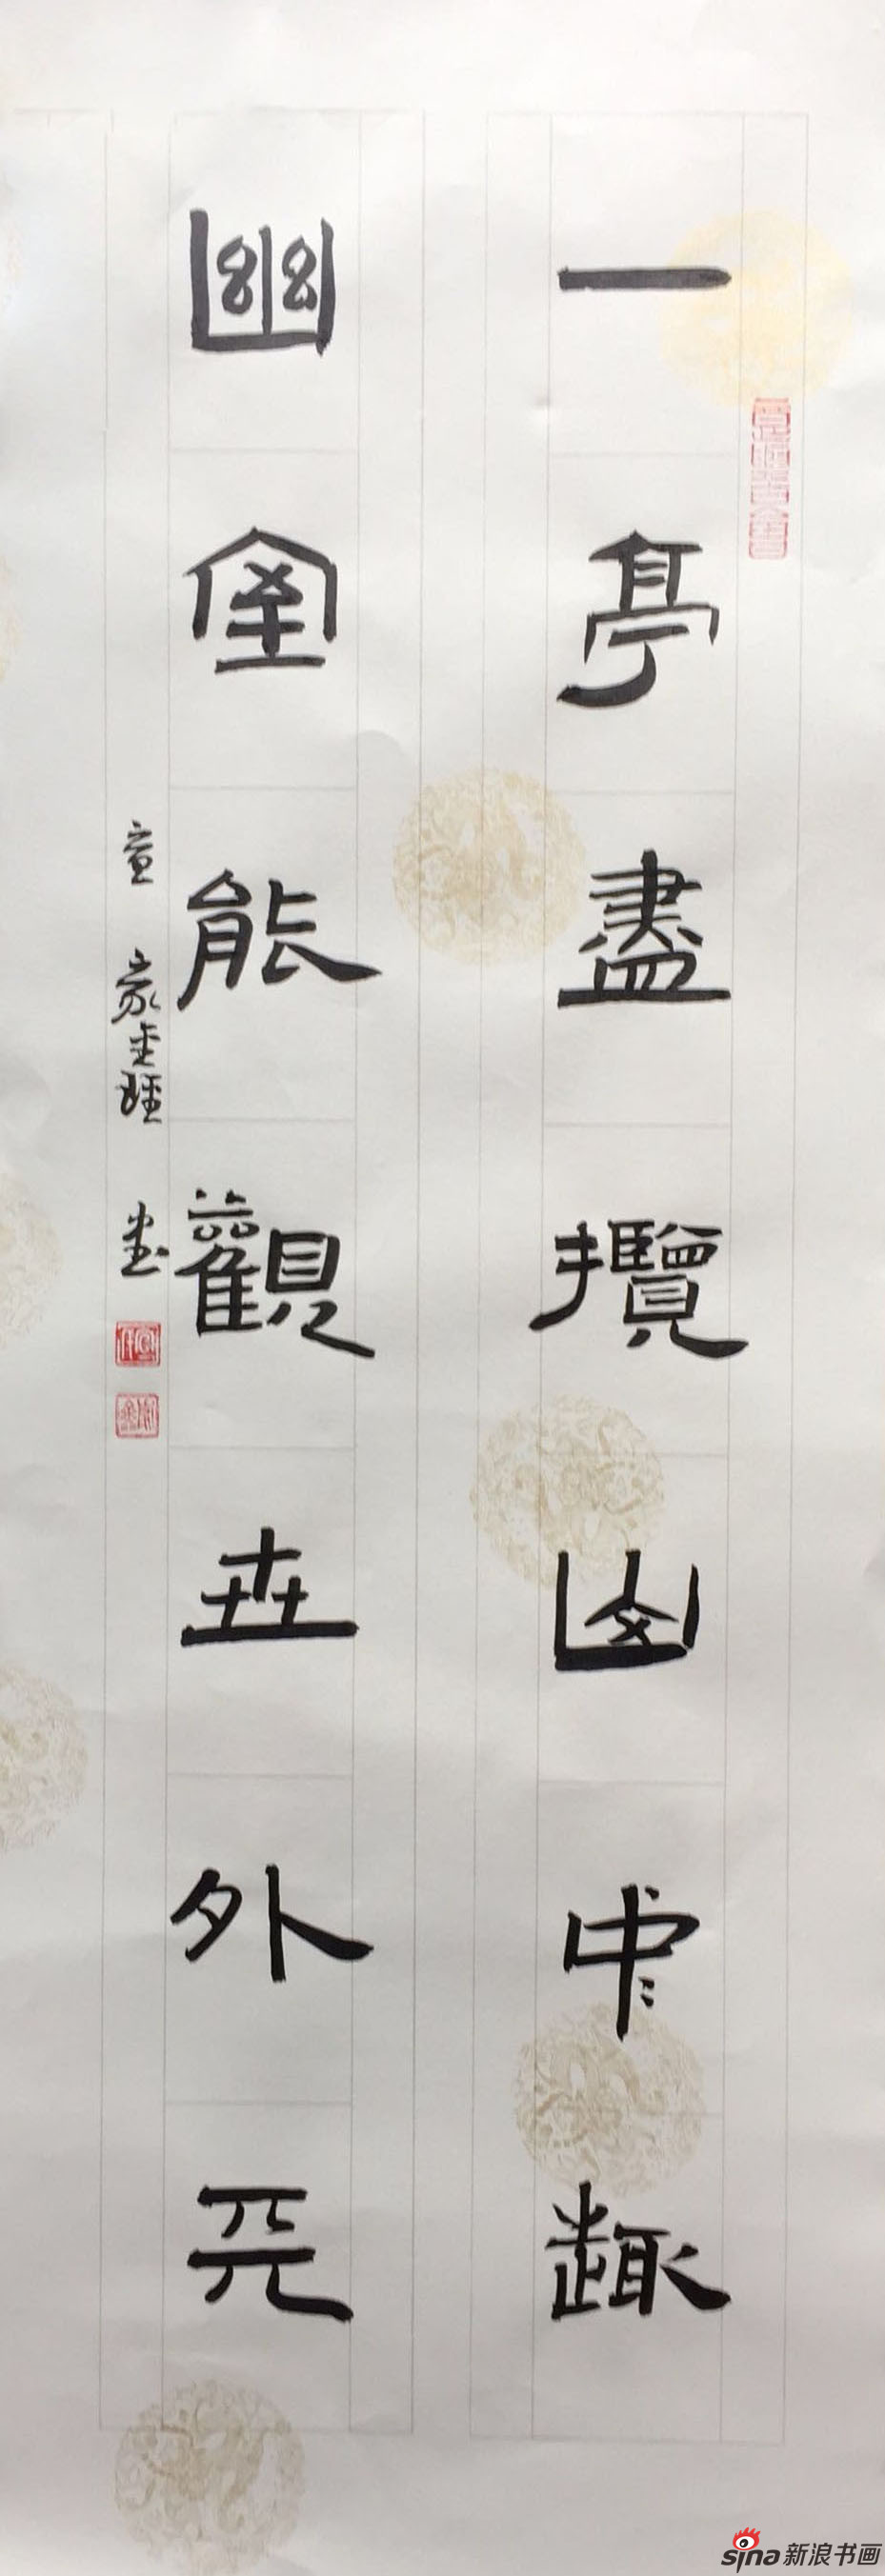 一亭盡攬山中趣
幽室能觀世外天
書
sina新浪书画